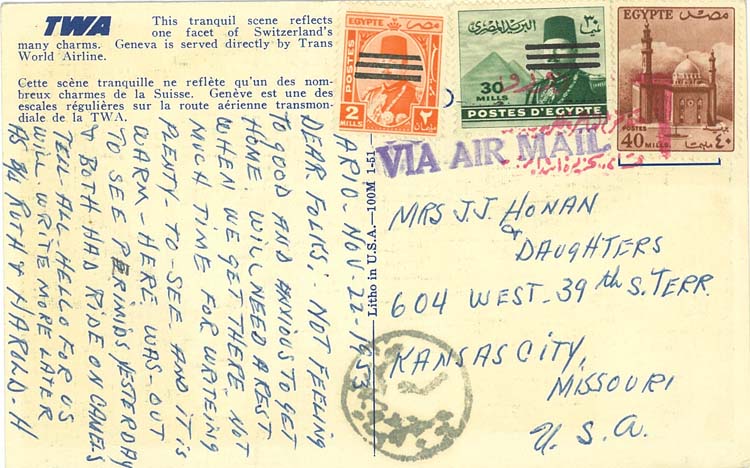 TWA
This tranquil scene reflects
one facet of Switzerland's
many charms. Geneva is served directly by Trans
World Airline.
Cette scène tranquille ne reflète qu'un des nom-
breux charmes de la Suisse. Genève est une des
escales régulières sur la route aérienne transmon-
diale de la TWA.
ARIO - NOV - 22 - 1953
DEAR FOLKS; - NOT FEELING
TO GOOD AND ANXIOUS TO GET
HOME. WILL NEED A REST
WHEN WE GET THERE. NOT
MUCH TIME FOR WRITEING
PLENTY - TO - SEE AND IT IS
WARM - HERE WAS - OUT
TO SEE PERIMIDS YESTERDAY
& BOTH HAD RIDE ON CAMELS
TELL - ALL - HELLO FOR US
WILL WRITE MORE LATER
AS RUTH & HAROLD. H
Litho in U.S.A.—100M 1-51
EGYPTE مصر
POSTES
2 MILLS ٢
البريد المصرى ٣٠
30 MILLS
POSTES D'EGYPTE
EGYPTE مصر
POSTES
40 MILLS ٤٠
VIA AIR MAIL
MRS J.J. HONAN
& DAUGHTERS
604 WEST - 39th S. TERR.
KANSAS CITY,
MISSOURI
U. S. A.